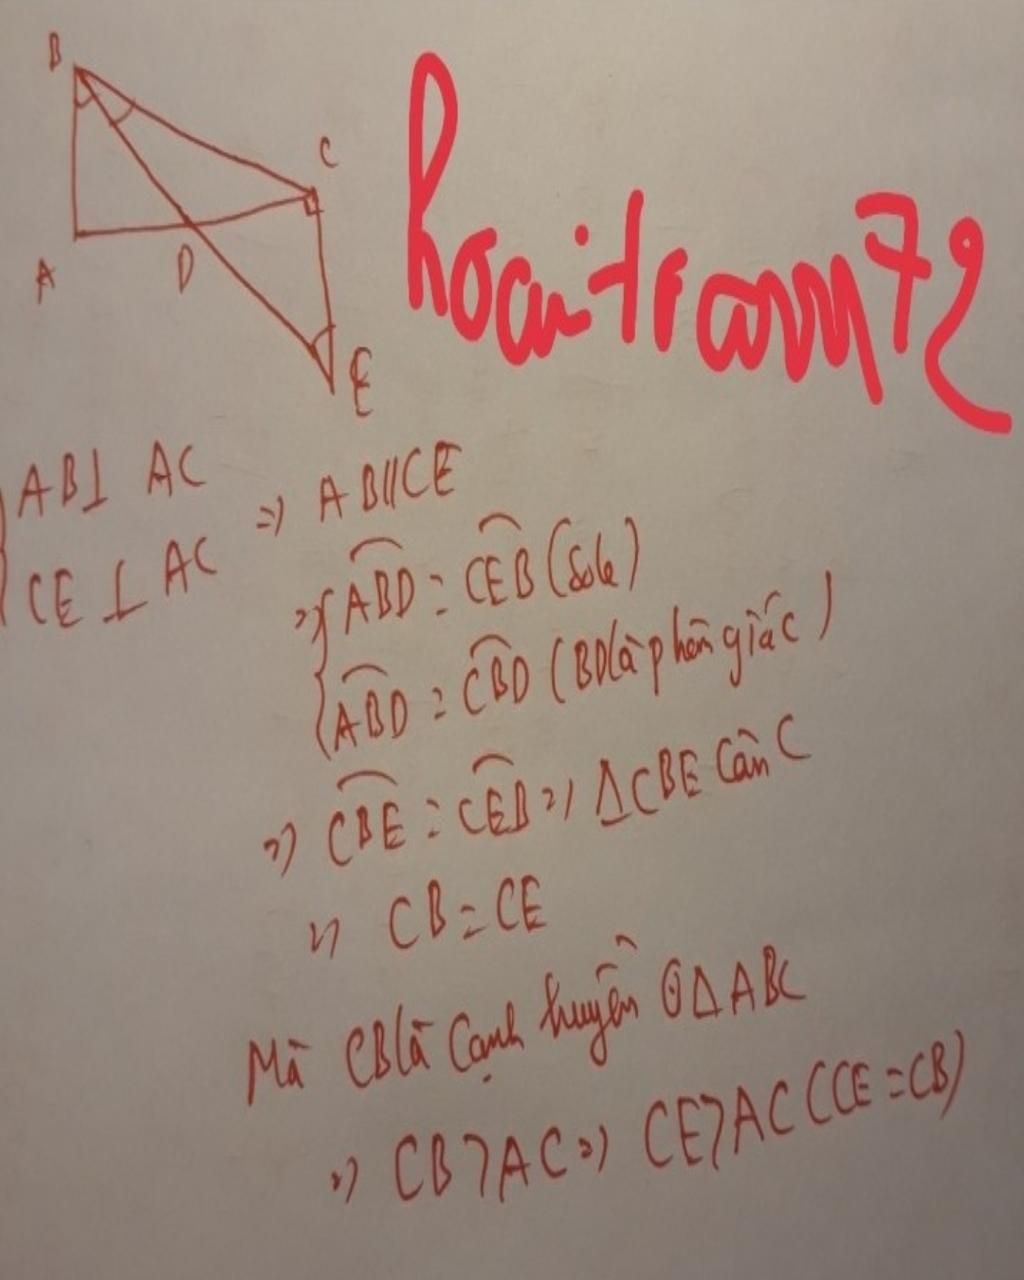 B
C
A
D
E
hoaitram72
AB⊥ AC
=> AB//CE
CE ⊥ AC
=> { ABD = CEB (Sole)
{ ABD = CBD (BD là phân giác)
=> CBE = CEB => ΔCBE Cân C
=> CB = CE
Mà CB là Cạnh huyền ΔABC
=> CB > AC => CE > AC (CE = CB)